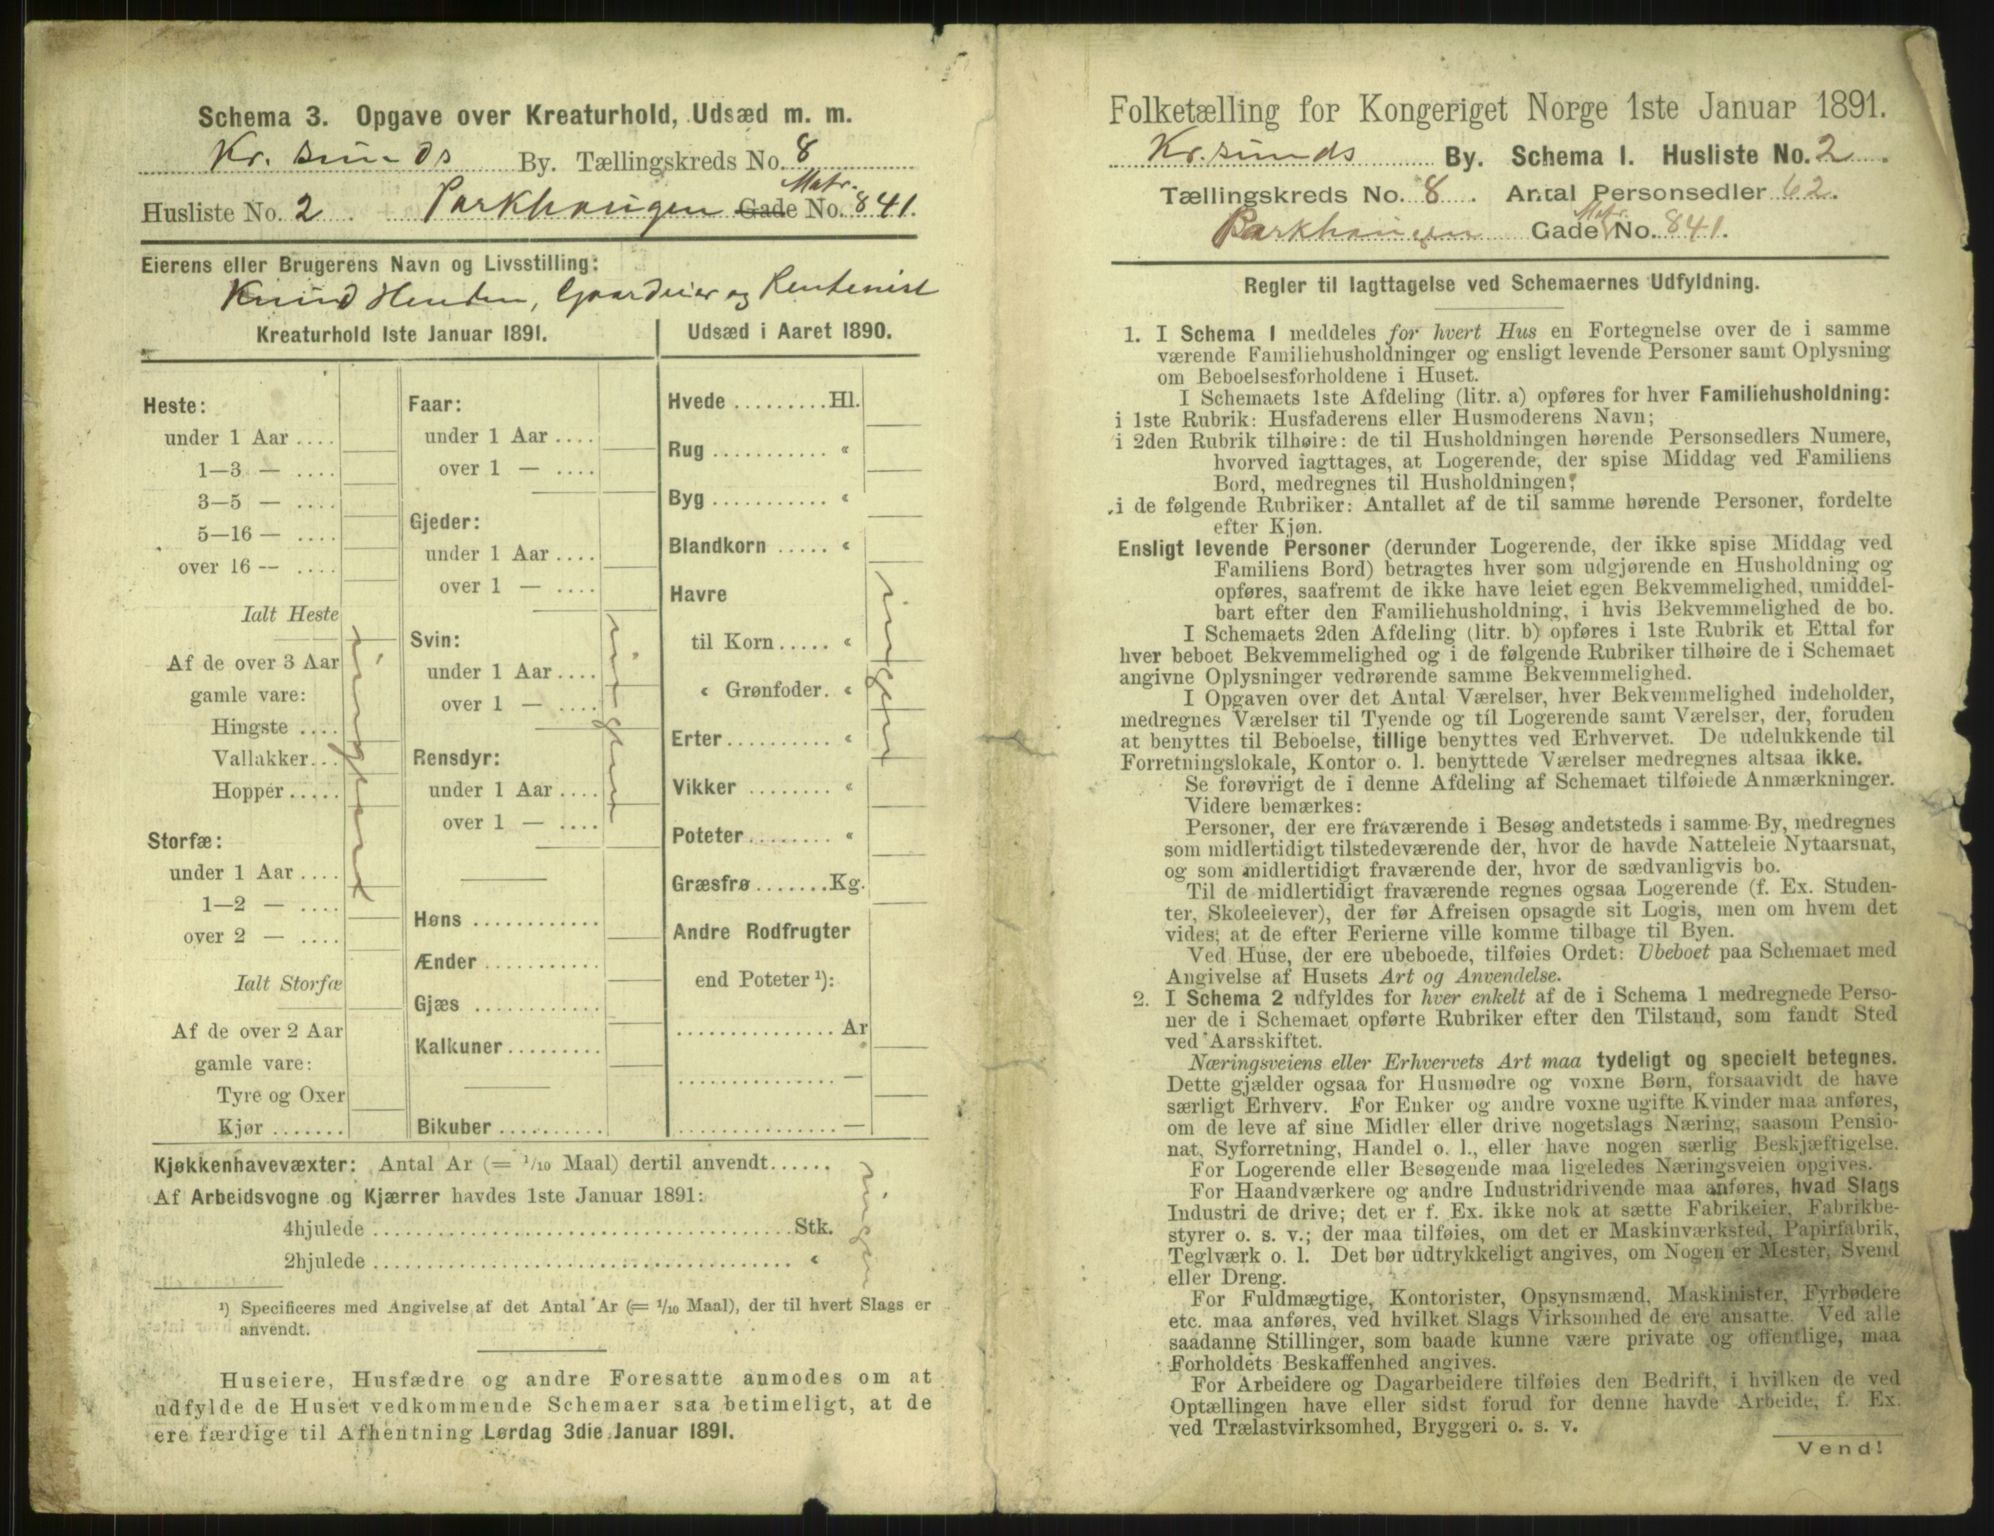 Schema 3. Opgave over Kreaturhold, Udsæd m. m.
Kr. sunds By. Tællingskreds No. 8
Husliste No. 2 . Parkhaugen Gade Matr. No. 841.
Eierens eller Brugerens Navn og Livsstilling:
Knud Henden, Gaardeier og Rentenist
Kreaturhold 1ste Januar 1891.
Heste:
under 1 Aar ....
1—3 — ....
3—5 — ....
5—16 — ....
over 16 — ....
Ialt Heste
Af de over 3 Aar
gamle vare:
Hingste ....
Vallakker...
Hopper.....
Storfæ:
under 1 Aar ....
1—2 — ....
over 2 — ....
Ialt Storfæ
Af de over 2 Aar
gamle vare:
Tyre og Oxer
Kjør.......
Faar:
under 1 Aar ....
over 1 — ....
Gjeder:
under 1 Aar ....
over 1 — ....
Svin:
under 1 Aar ....
over 1 — ....
Rensdyr:
under 1 Aar ....
over 1 — ....
Høns ............
Ænder ...........
Gjæs ............
Kalkuner.........
Bikuber..........
Udsæd i Aaret 1890.
Hvede .........Hl.
Rug ........... «
Byg ........... «
Blandkorn ..... «
Havre
til Korn ..... «
« Grønfoder. «
Erter.......... «
Vikker ........ «
Poteter........ «
Græsfrø.......Kg.
Andre Rodfrugter
end Poteter ¹):
...............Ar
...............—
...............—
Kjøkkenhavevæxter: Antal Ar (= 1/10 Maal) dertil anvendt......
Af Arbeidsvogne og Kjærrer havdes 1ste Januar 1891:
4hjulede ..................................... Stk.
2hjulede ..................................... «
¹) Specificeres med Angivelse af det Antal Ar (= 1/10 Maal), der til hvert Slags er
anvendt.
Huseiere, Husfædre og andre Foresatte anmodes om at
udfylde de Huset vedkommende Schemaer saa betimeligt, at de
ere færdige til Afhentning Lørdag 3die Januar 1891.
Folketælling for Kongeriget Norge 1ste Januar 1891.
Kr. sunds By. Schema 1. Husliste No. 2 .
Tællingskreds No. 8 . Antal Personsedler 62.
Parkhaugen Gade Matr. No. 841.
Regler til Iagttagelse ved Schemaernes Udfyldning.
1. I Schema 1 meddeles for hvert Hus en Fortegnelse over de i samme
værende Familiehusholdninger og ensligt levende Personer samt Oplysning
om Beboelsesforholdene i Huset.
I Schemaets 1ste Afdeling (litr. a) opføres for hver Familiehusholdning:
i 1ste Rubrik: Husfaderens eller Husmoderens Navn;
i 2den Rubrik tilhøire: de til Husholdningen hørende Personsedlers Numere,
hvorved iagttages, at Logerende, der spise Middag ved Familiens
Bord, medregnes til Husholdningen;
i de følgende Rubriker: Antallet af de til samme hørende Personer, fordelte
efter Kjøn.
Ensligt levende Personer (derunder Logerende, der ikke spise Middag ved
Familiens Bord) betragtes hver som udgjørende en Husholdning og
opføres, saafremt de ikke have leiet egen Bekvemmelighed, umiddel-
bart efter den Familiehusholdning, i hvis Bekvemmelighed de bo.
I Schemaets 2den Afdeling (litr. b) opføres i 1ste Rubrik et Ettal for
hver beboet Bekvemmelighed og i de følgende Rubriker tilhøire de i Schemaet
angivne Oplysninger vedrørende samme Bekvemmelighed.
I Opgaven over det Antal Værelser, hver Bekvemmelighed indeholder,
medregnes Værelser til Tyende og til Logerende samt Værelser, der, foruden
at benyttes til Beboelse, tillige benyttes ved Erhvervet. De udelukkende til
Forretningslokale, Kontor o. l. benyttede Værelser medregnes altsaa ikke.
Se forøvrigt de i denne Afdeling af Schemaet tilføiede Anmærkninger.
Videre bemærkes:
Personer, der ere fraværende i Besøg andetsteds i samme By, medregnes
som midlertidigt tilstedeværende der, hvor de havde Natteleie Nytaarsnat,
og som midlertidigt fraværende der, hvor de sædvanligvis bo.
Til de midlertidigt fraværende regnes ogsaa Logerende (f. Ex. Studen-
ter, Skoleelever), der før Afreisen opsagde sit Logis, men om hvem det
vides, at de efter Ferierne ville komme tilbage til Byen.
Ved Huse, der ere ubeboede, tilføies Ordet: Ubeboet paa Schemaet med
Angivelse af Husets Art og Anvendelse.
2. I Schema 2 udfyldes for hver enkelt af de i Schema 1 medregnede Perso-
ner de i Schemaet opførte Rubriker efter den Tilstand, som fandt Sted
ved Aarsskiftet.
Næringsveiens eller Erhvervets Art maa tydeligt og specielt betegnes.
Dette gjælder ogsaa for Husmødre og voxne Børn, forsaavidt de have
særligt Erhverv. For Enker og andre voxne ugifte Kvinder maa anføres,
om de leve af sine Midler eller drive nogetslags Næring, saasom Pensio-
nat, Syforretning, Handel o. l., eller have nogen særlig Beskjæftigelse.
For Logerende eller Besøgende maa ligeledes Næringsveien opgives.
For Haandværkere og andre Industridrivende maa anføres, hvad Slags
Industri de drive; det er f. Ex. ikke nok at sætte Fabrikeier, Fabrikbe-
styrer o. s. v.; der maa tilføies, om det er Maskinværksted, Papirfabrik,
Teglværk o. l. Det bør udtrykkeligt angives, om Nogen er Mester, Svend
eller Dreng.
For Fuldmægtige, Kontorister, Opsynsmænd, Maskinister, Fyrbødere
etc. maa anføres, ved hvilket Slags Virksomhed de ere ansatte. Ved alle
saadanne Stillinger, som baade kunne være private og offentlige, maa
Forholdets Beskaffenhed angives.
For Arbeidere og Dagarbeidere tilføies den Bedrift, i hvilken de ved
Optællingen have eller sidst forud for denne havde Arbeide, f. Ex.
ved Trælastvirksomhed, Bryggeri o. s. v.
Vend!